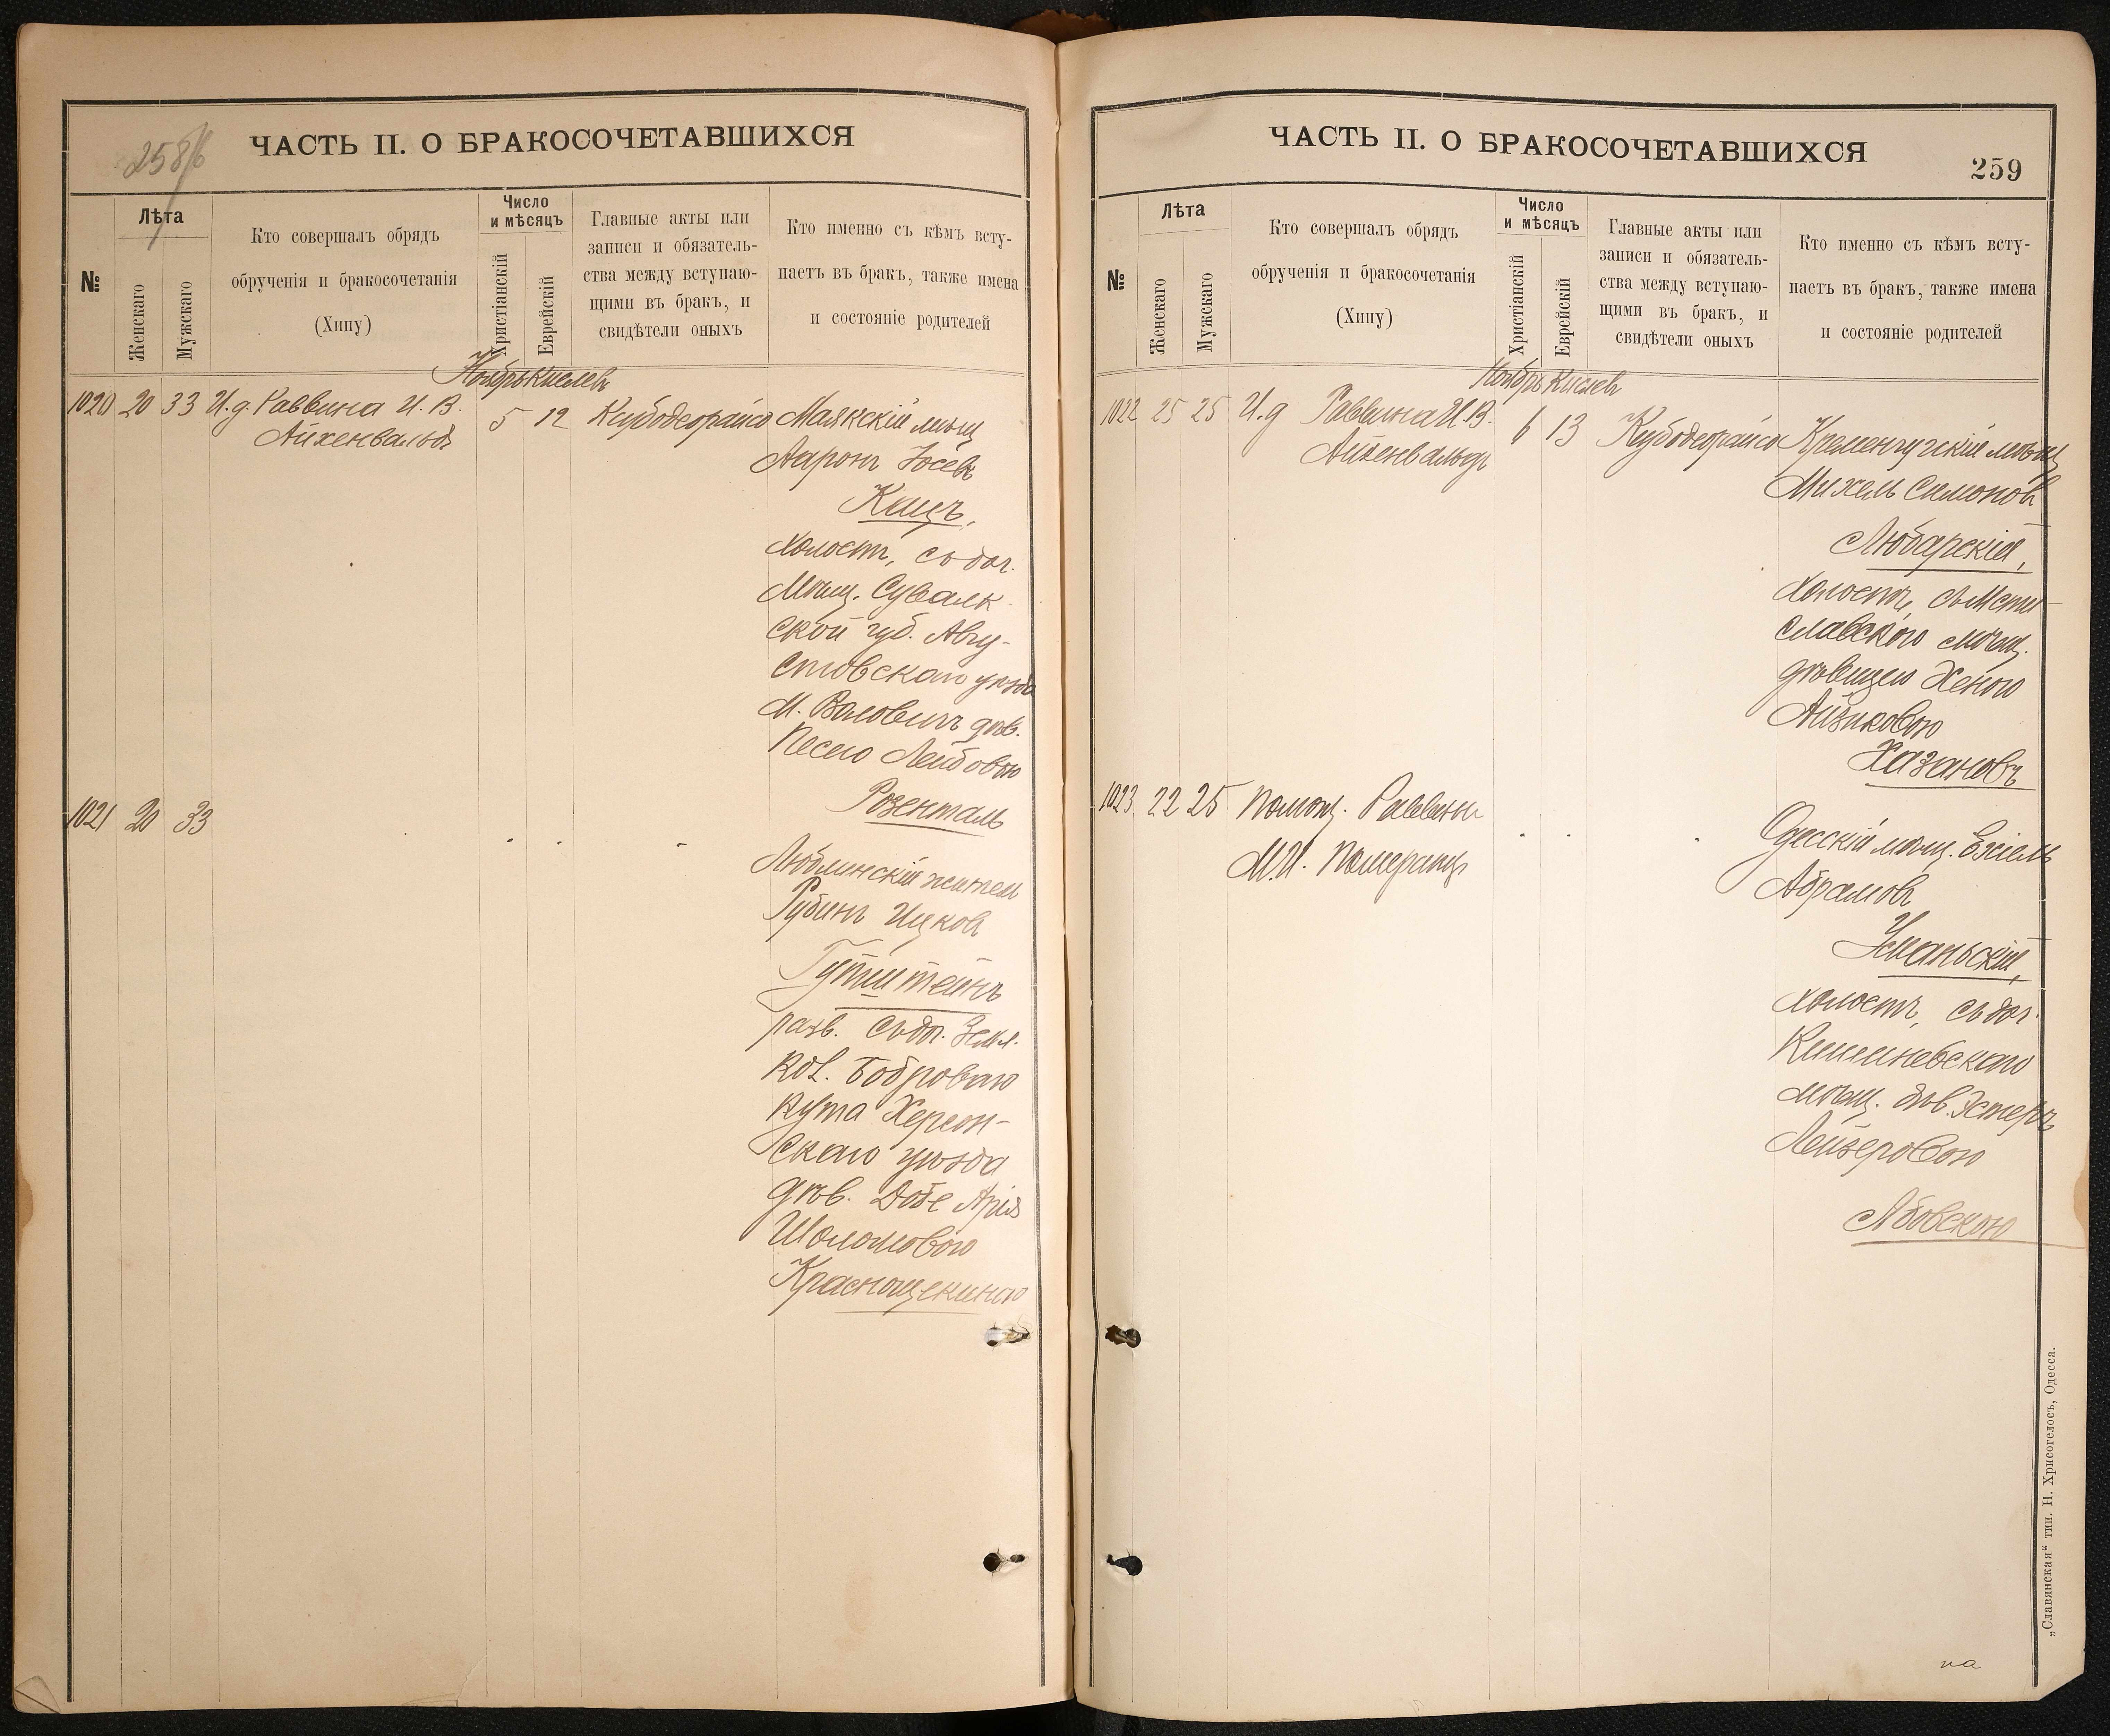 258/б
ЧАСТЬ II. О БРАКОСОЧЕТАВШИХСЯ
№
Лѣта
Женскаго
Мужскаго
Кто совершалъ обрядъ
обрученія и бракосочетанія
(Хипу)
Число
и мѣсяцъ
Христіанскій
Еврейскій
Главные акты или
записи и обязатель-
ства между вступаю-
щими въ бракъ, и
свидѣтели оныхъ
Кто именно съ кѣмъ всту-
паетъ въ бракъ, также имена
и состояніе родителей
Ноябрь Кислевъ
1020 20 33 И.д. Раввина И. В. 5 12 Маякскій мѣщ
Айхенвальдъ
Ааронъ Іосевъ
Кацъ,
холостъ, съ доч.
Мѣщ. Сувалк
ской губ. Авгу-
стовскаго уѣзда
М. Воловичъ дѣв.
Песею Лейбовою
Розенталь
1021 20 33
Люблинскій житель
Рубинъ Ицковъ
Гутштейнъ
разв. съ доч. Земл.
Кол. Бобрового
Кута Херсон-
скаго уѣзда
дѣв. Добе
Шоломовою
Краснощекиною
ЧАСТЬ II. О БРАКОСОЧЕТАВШИХСЯ
259
№
Лѣта
Женскаго
Мужскаго
Кто совершалъ обрядъ
обрученія и бракосочетанія
(Хипу)
Число
и мѣсяцъ
Христіанскій
Еврейскій
Главные акты или
записи и обязатель-
ства между вступаю-
щими въ бракъ, и
свидѣтели оныхъ
Кто именно съ кѣмъ всту-
паетъ въ бракъ, также имена
и состояніе родителей
Ноябрь Кислевъ
1022 25 25 И.д Раввина И.В. 6 13 Кременчугскій мѣщ
Айхенвальдъ
Михель Симоновъ
Любарскій,
холостъ, съ Мсти-
славскою мѣщ.
дѣвицею Хеною
Айзиковою
Хазановъ
1023 22 25 Помощ. Раввина
М.И. Померанцъ
Одесскій мѣщ. Ехіель
Абрамовъ
Уманьскій,
холостъ, съ доч.
Кишиневскаго
мѣщ. дѣв. Эстеръ
Лейзеровою
Абовскою
на
„Славянская“ тип. Н. Хрисогелосъ, Одесса.